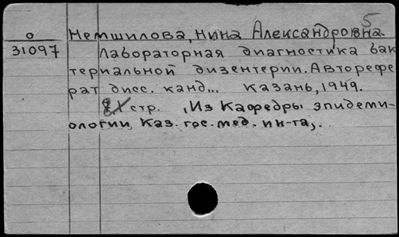 5
о Немшилова, Нина Александровна.
31097 Лабораторная диагностика бак
териальной дизентерии. Авторефе
рат дисс. канд... Казань, 1949.
стр. , Из Кафедры эпидеми-
ологии Каз. гос. мед. ин-та,.